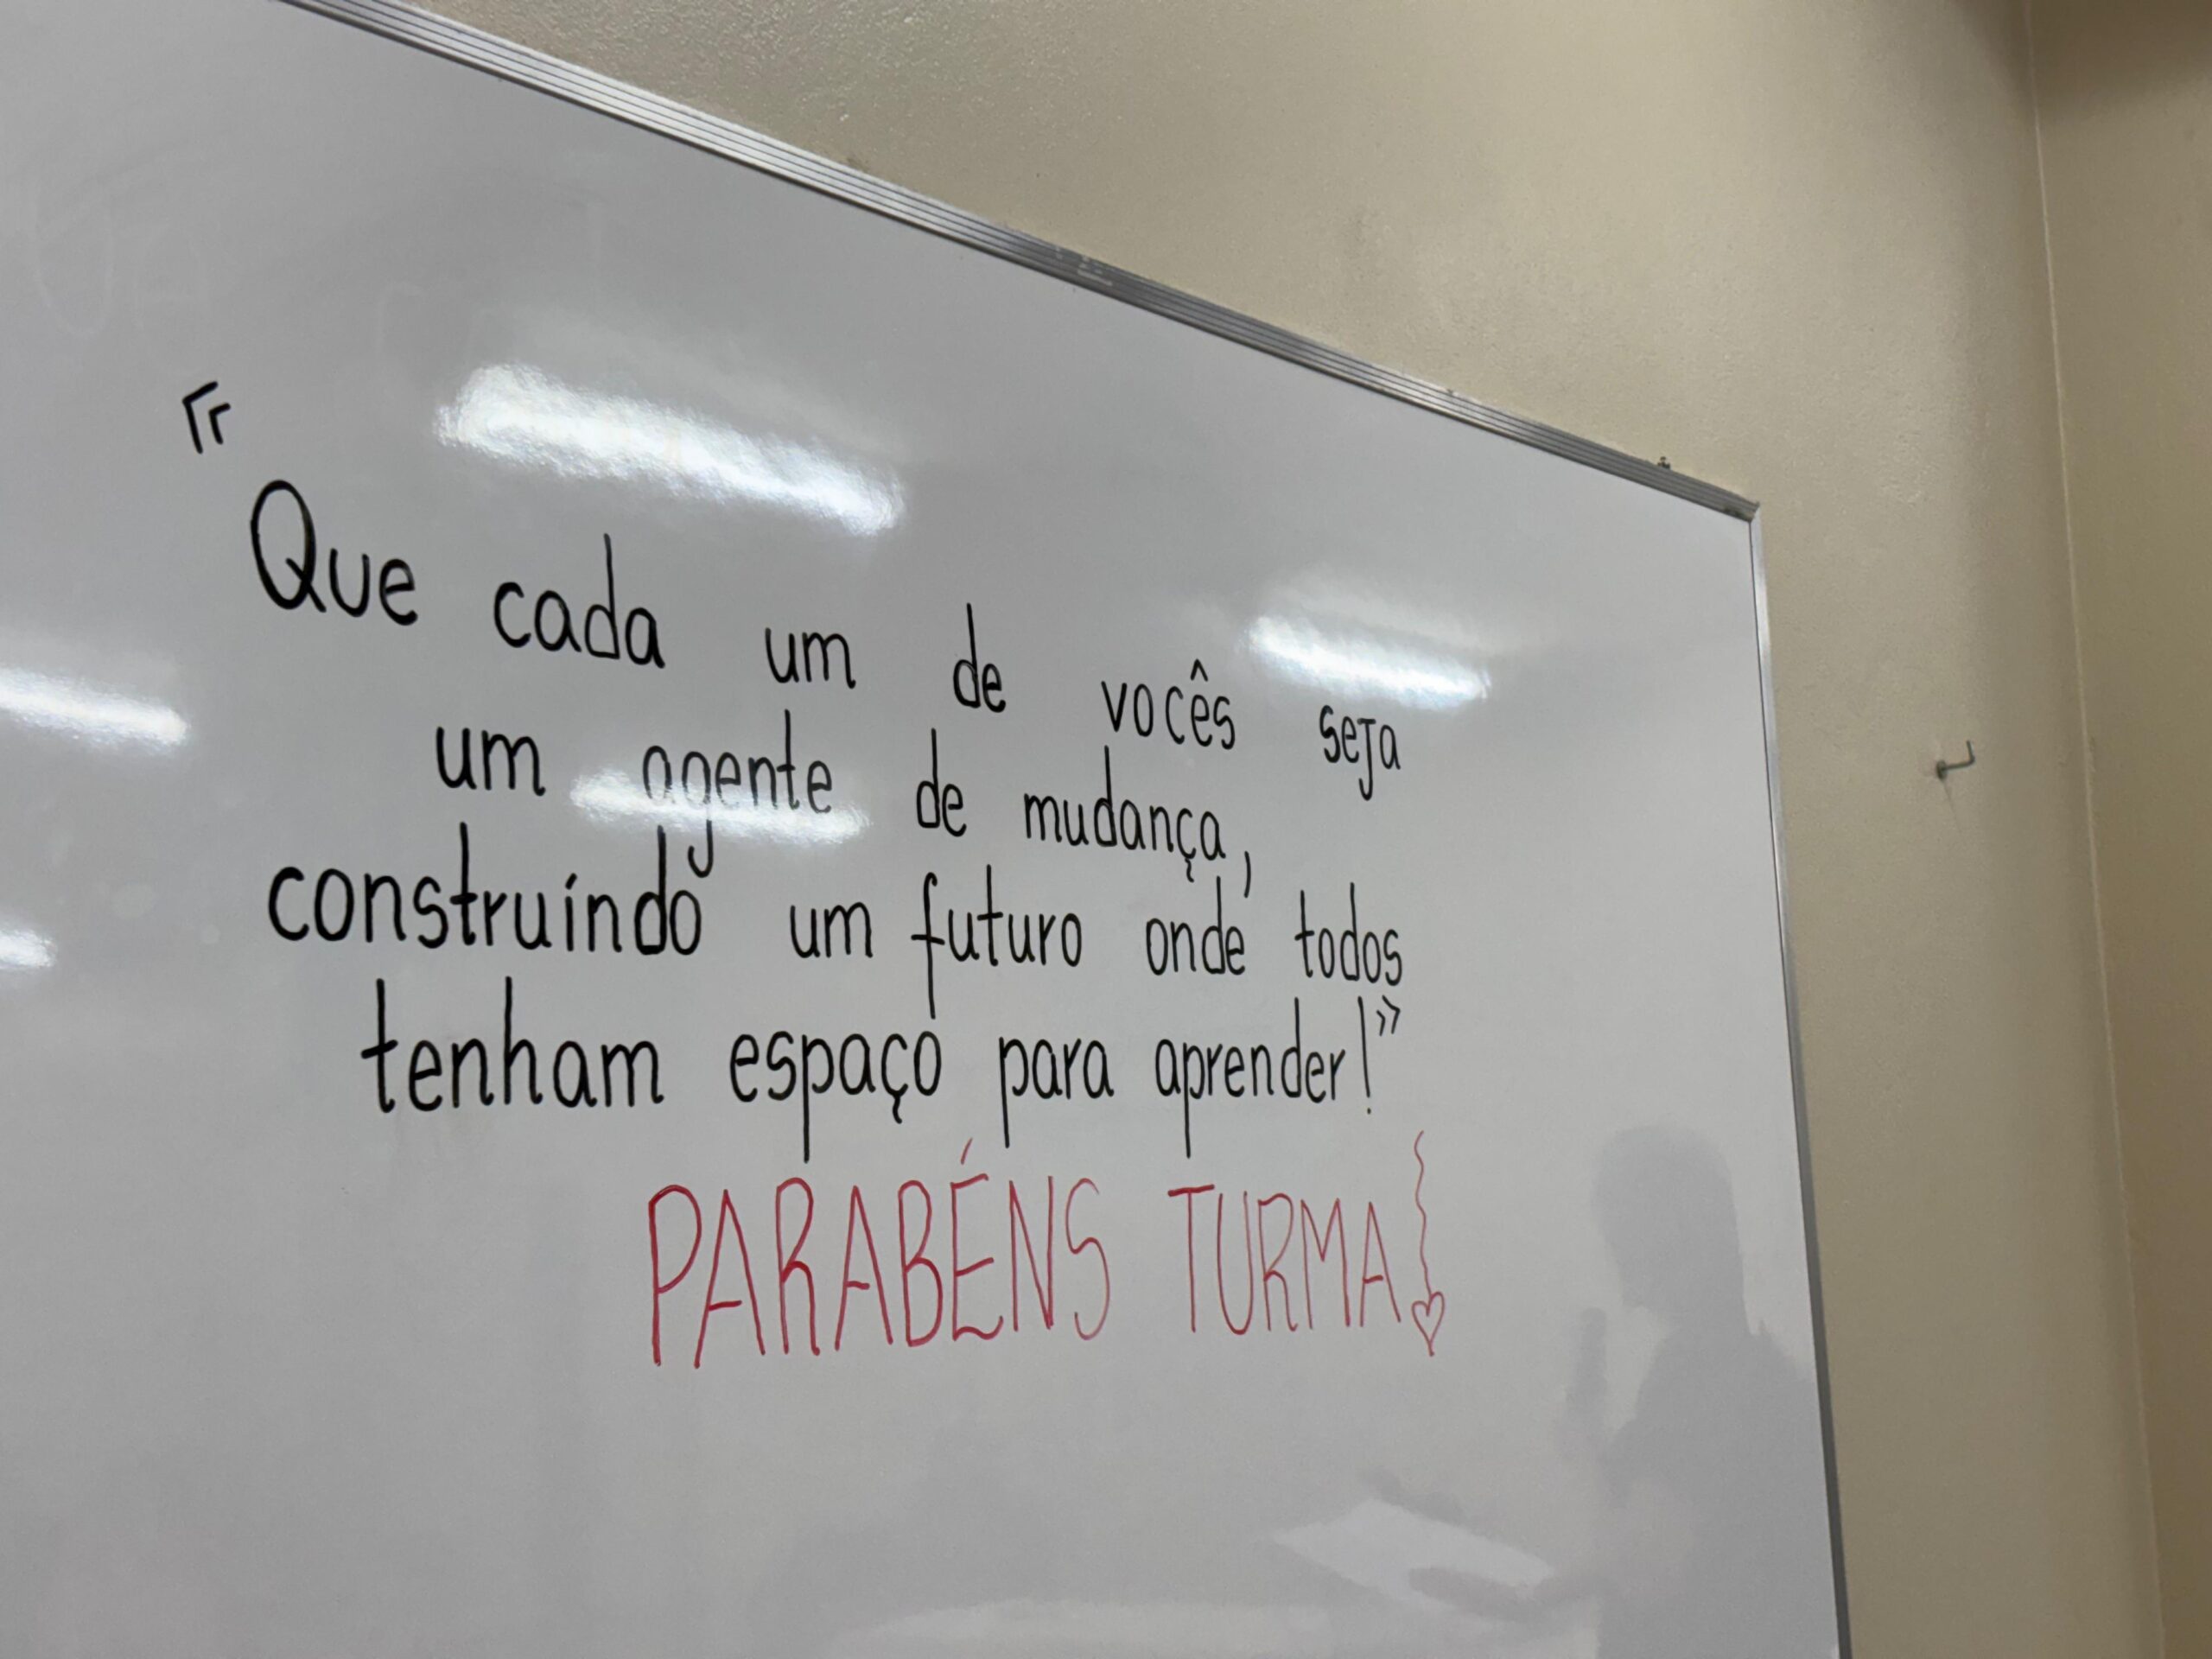 "Que cada um de vocês seja
um agente de mudança,
construindo um futuro onde todos
tenham espaço para aprender!"
PARABÉNS TURMA!